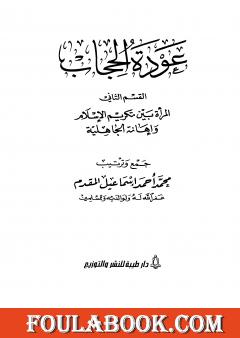 عودة الحجاب
القسم الثاني
المرأة بين تكريم الإسلام
وإهانة الجاهلية
جمع وترتيب
محمد أحمد إسماعيل المقدم
عفا الله له ولوالديه وللمسلمين
دار طيبة للنشر والتوزيع
FOULABOOK.COM